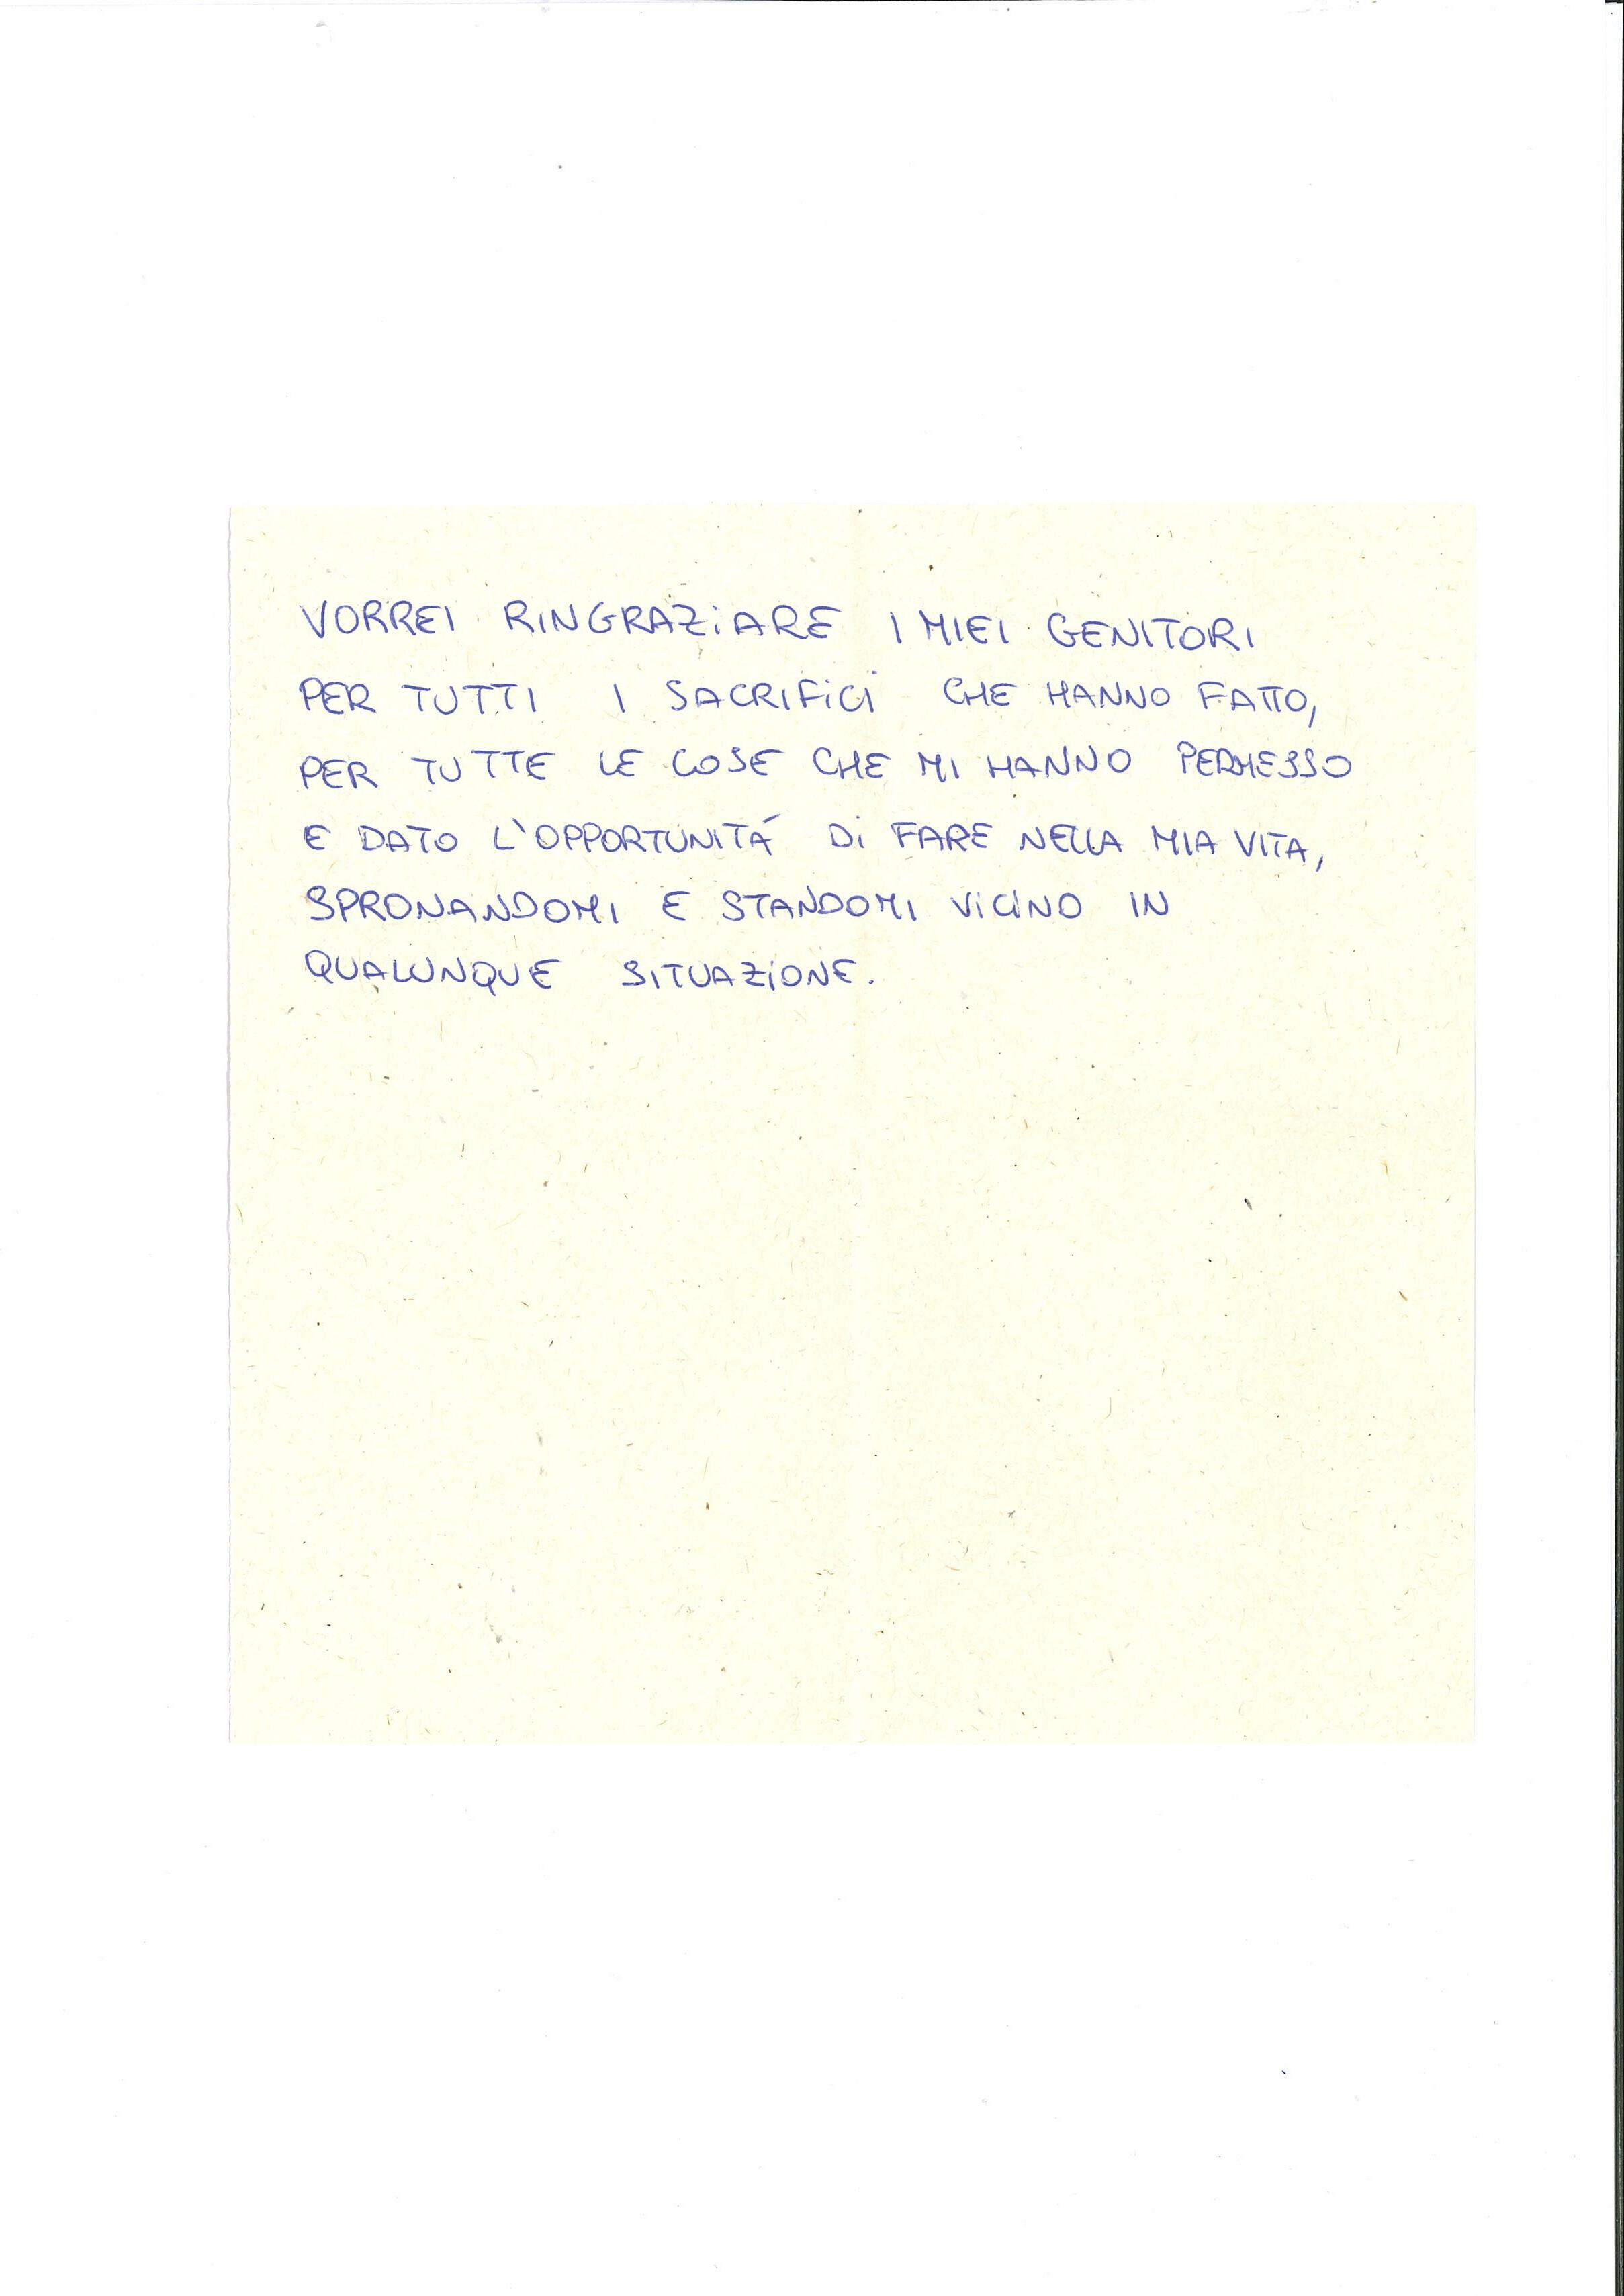 VORREI RINGRAZIARE I MIEI GENITORI
PER TUTTI I SACRIFICI CHE HANNO FATTO,
PER TUTTE LE COSE CHE MI HANNO PERMESSO
E DATO L'OPPORTUNITÁ DI FARE NELLA MIA VITA,
SPRONANDOMI E STANDOMI VICINO IN
QUALUNQUE SITUAZIONE.